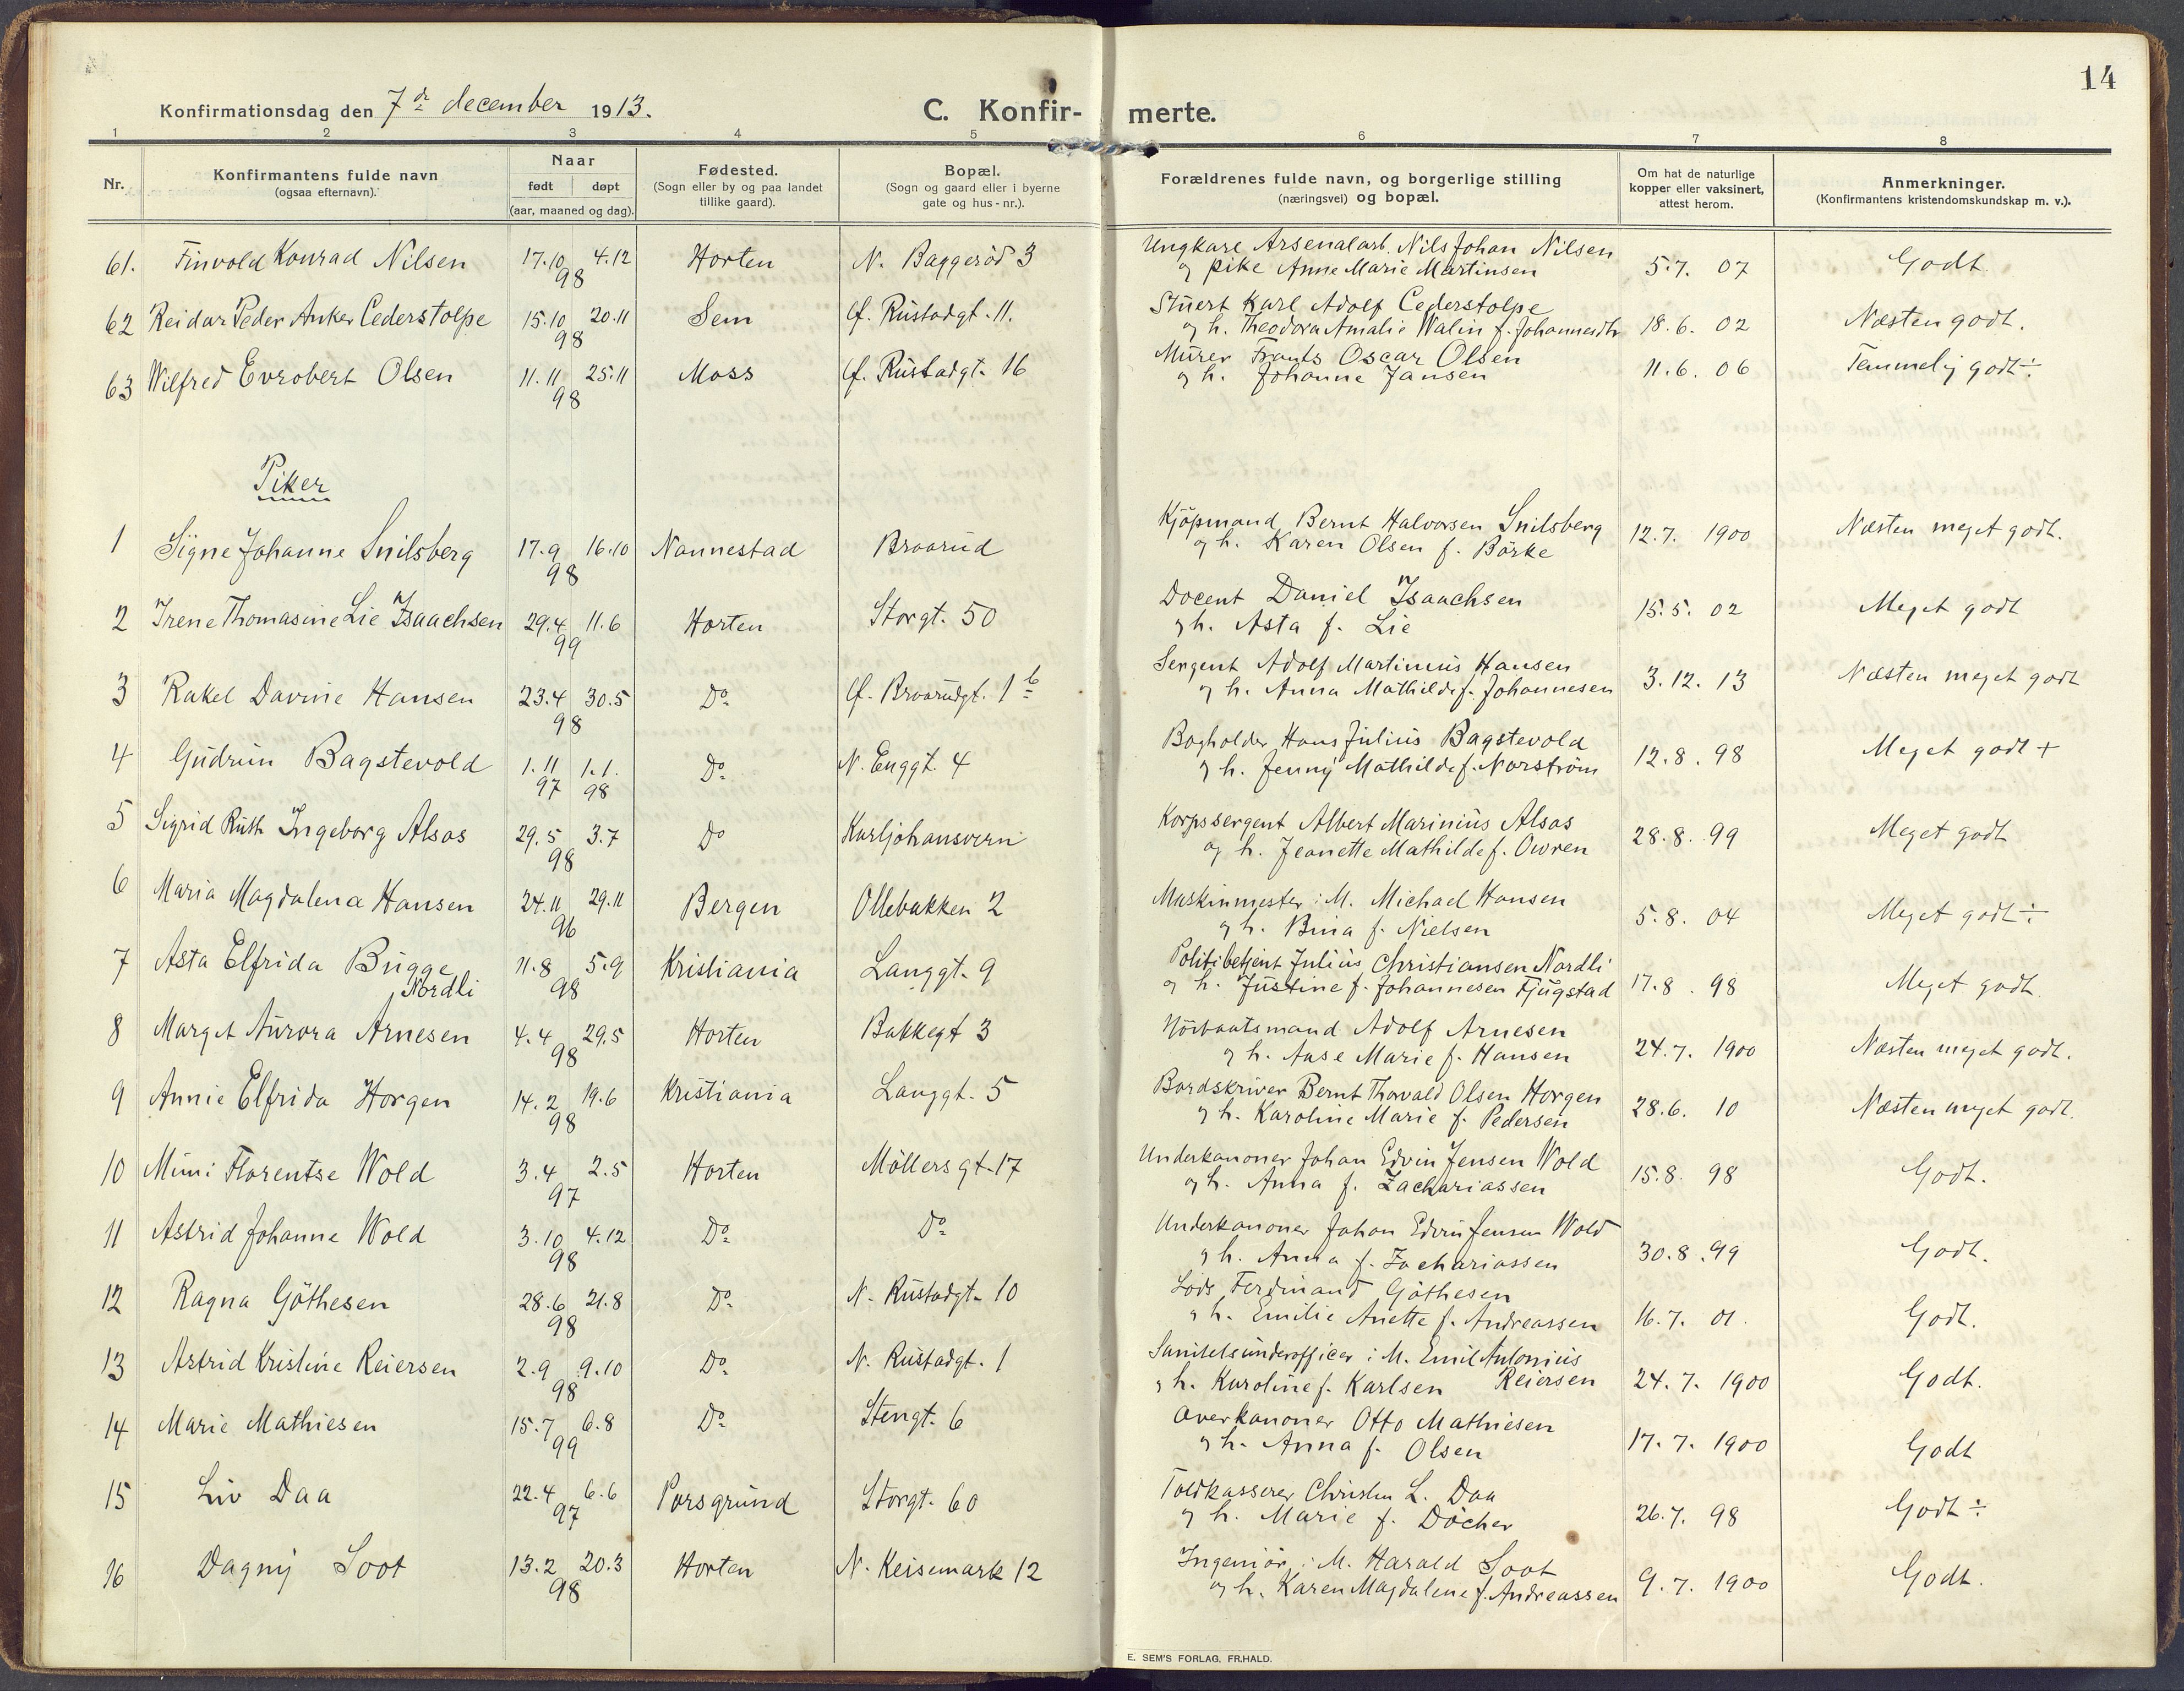 14
Konfirmationsdag den 7de december 1913.
C. Konfir- merte.
1 2 3 4 5 6 7 8
Nr.
Konfirmantens fulde navn
(ogsaa efternavn).
Naar
født døpt
(aar, maaned og dag).
Fødested.
(Sogn eller by og paa landet
tillike gaard).
Bopæl.
(Sogn og gaard eller i byerne
gate og hus-nr.).
Forældrenes fulde navn, og borgerlige stilling
(næringsvei) og bopæl.
Om hat de naturlige
kopper eller vaksinert,
attest herom.
Anmerkninger.
(Konfirmantens kristendomskundskap m. v.).
61. Finvold Konrad Nilsen 17.10 98 4.12 Horten N. Baggerød 3 Ungkarl Arsenalarb. Nils Johan Nilsen
og pike Anne Marie Martinsen 5.7. 07 Godt.
62 Reidar Peder Anker Cederstolpe 15.10 98 20.11 Sem Ø. Rustadgt. 11. Stuert Karl Adolf Cederstolpe
og h. Theodora Amalie Walin f. Johannesdtr 18.6. 02 Næsten godt.
63 Wilfred Evrobert Olsen 11.11 98 25.11 Moss Ø. Rustadgt. 16 Murer Frants Oscar Olsen
og h. Johanne Jansen 11.6. 06 Temmelig godt÷
Piker
1 Signe Johanne Snilsberg 17.9 98 16.10 Nannestad Braarud Kjøpmand Bernt Halvorsen Snilsberg
og h. Karen Olsen f. Børke 12.7. 1900 Næsten meget godt.
2 Irene Thomasine Lie Isaachsen 29.4 99 11.6 Horten Storgt. 50 Docent Daniel Isaachsen
og h. Asta f. Lie 15.5. 02 Meget godt
3 Rakel Davine Hansen 23.4 98 30.5 Do Ø. Braarudgt. 1b Sergent Adolf Martinius Hansen
og h. Anna Mathilde f. Johannesen 3.12. 13 Næsten meget godt
4 Gudrun Bagstevold 1.11 97 1.1. 98 Do N. Enggt. 4 Bogholder Hans Julius Bagstevold
og h. Jenny Mathilde f. Norström 12.8. 98 Meget godt +
5 Sigrid Ruth Ingeborg Alsos 29.5 98 3.7 Do Karljohansvern Korpssergent Albert Marinius Alsos
og h. Jeanette Mathilde f. Owren 28.8. 99 Meget godt
6 Maria Magdalena Hansen 24.11 96 29.11 Bergen Ollebakken 2 Maskinmester i M. Michael Hansen
og h. Bina f. Nielsen 5.8. 04 Meget godt÷
7 Asta Elfrida Bugge
Nordli 11.8 98 5.9 Kristiania Langgt. 9 Politibetjent Julius Christiansen Nordli
og h. Justine f. Johannesen Fjugstad 17.8. 98 Meget godt.
8 Margit Aurora Arnesen 4.4 98 29.5 Horten Bakkegt 3 Høibaatsmand Adolf Arnesen
og h. Aase Marie f. Hansen 24.7. 1900 Næsten meget godt.
9 Annie Elfrida Horgen 14.2 98 19.6 Kristiania Langgt. 5 Bordskriver Bernt Thorvald Olsen Horgen
og h. Karoline Marie f. Pedersen 28.6. 10 Næsten meget godt.
10 Mimi Florentse Wold 3.4 97 2.5 Horten Möllersgt. 17 Underkanoner Johan Edvin Jensen Wold
og h. Anna f. Zachariassen 15.8. 98 Godt.
11 Astrid Johanne Wold 3.10 98 4.12 Do Do Underkanoner Johan Edvin Jensen Wold
og h. Anna f. Zachariassen 30.8. 99 Godt.
12 Ragna Göthesen 28.6 98 21.8 Do N. Rustadgt. 10 Lods Ferdinand Göthesen
og h. Emilie Anette f. Andreassen 16.7. 01. Godt.
13 Astrid Kristine Reiersen 2.9 98 9.10 Do N. Rustadgt. 1 Sanitetsunderofficer i M. Emil Antonius
Reiersen
og h. Karoline f. Karlsen 24.7. 1900 Godt.
14 Marie Mathiesen 15.7 99 6.8 Do Stengt. 6 Overkanoner Otto Mathiesen
og h. Anna f. Olsen 17.7. 1900 Godt
15 Liv Daa 22.4 97 6.6 Porsgrund Storgt. 60 Toldkasserer Christen L. Daa
og h. Marie f. Döcher 26.7. 98 Godt÷
16 Dagny Soot 13.2 98 20.3 Horten N. Keisemark 12 Ingeniör i M. Harald Soot
og h. Karen Magdalene f. Andreassen 9.7. 1900 Godt.
E. SEM'S FORLAG, FR.HALD.